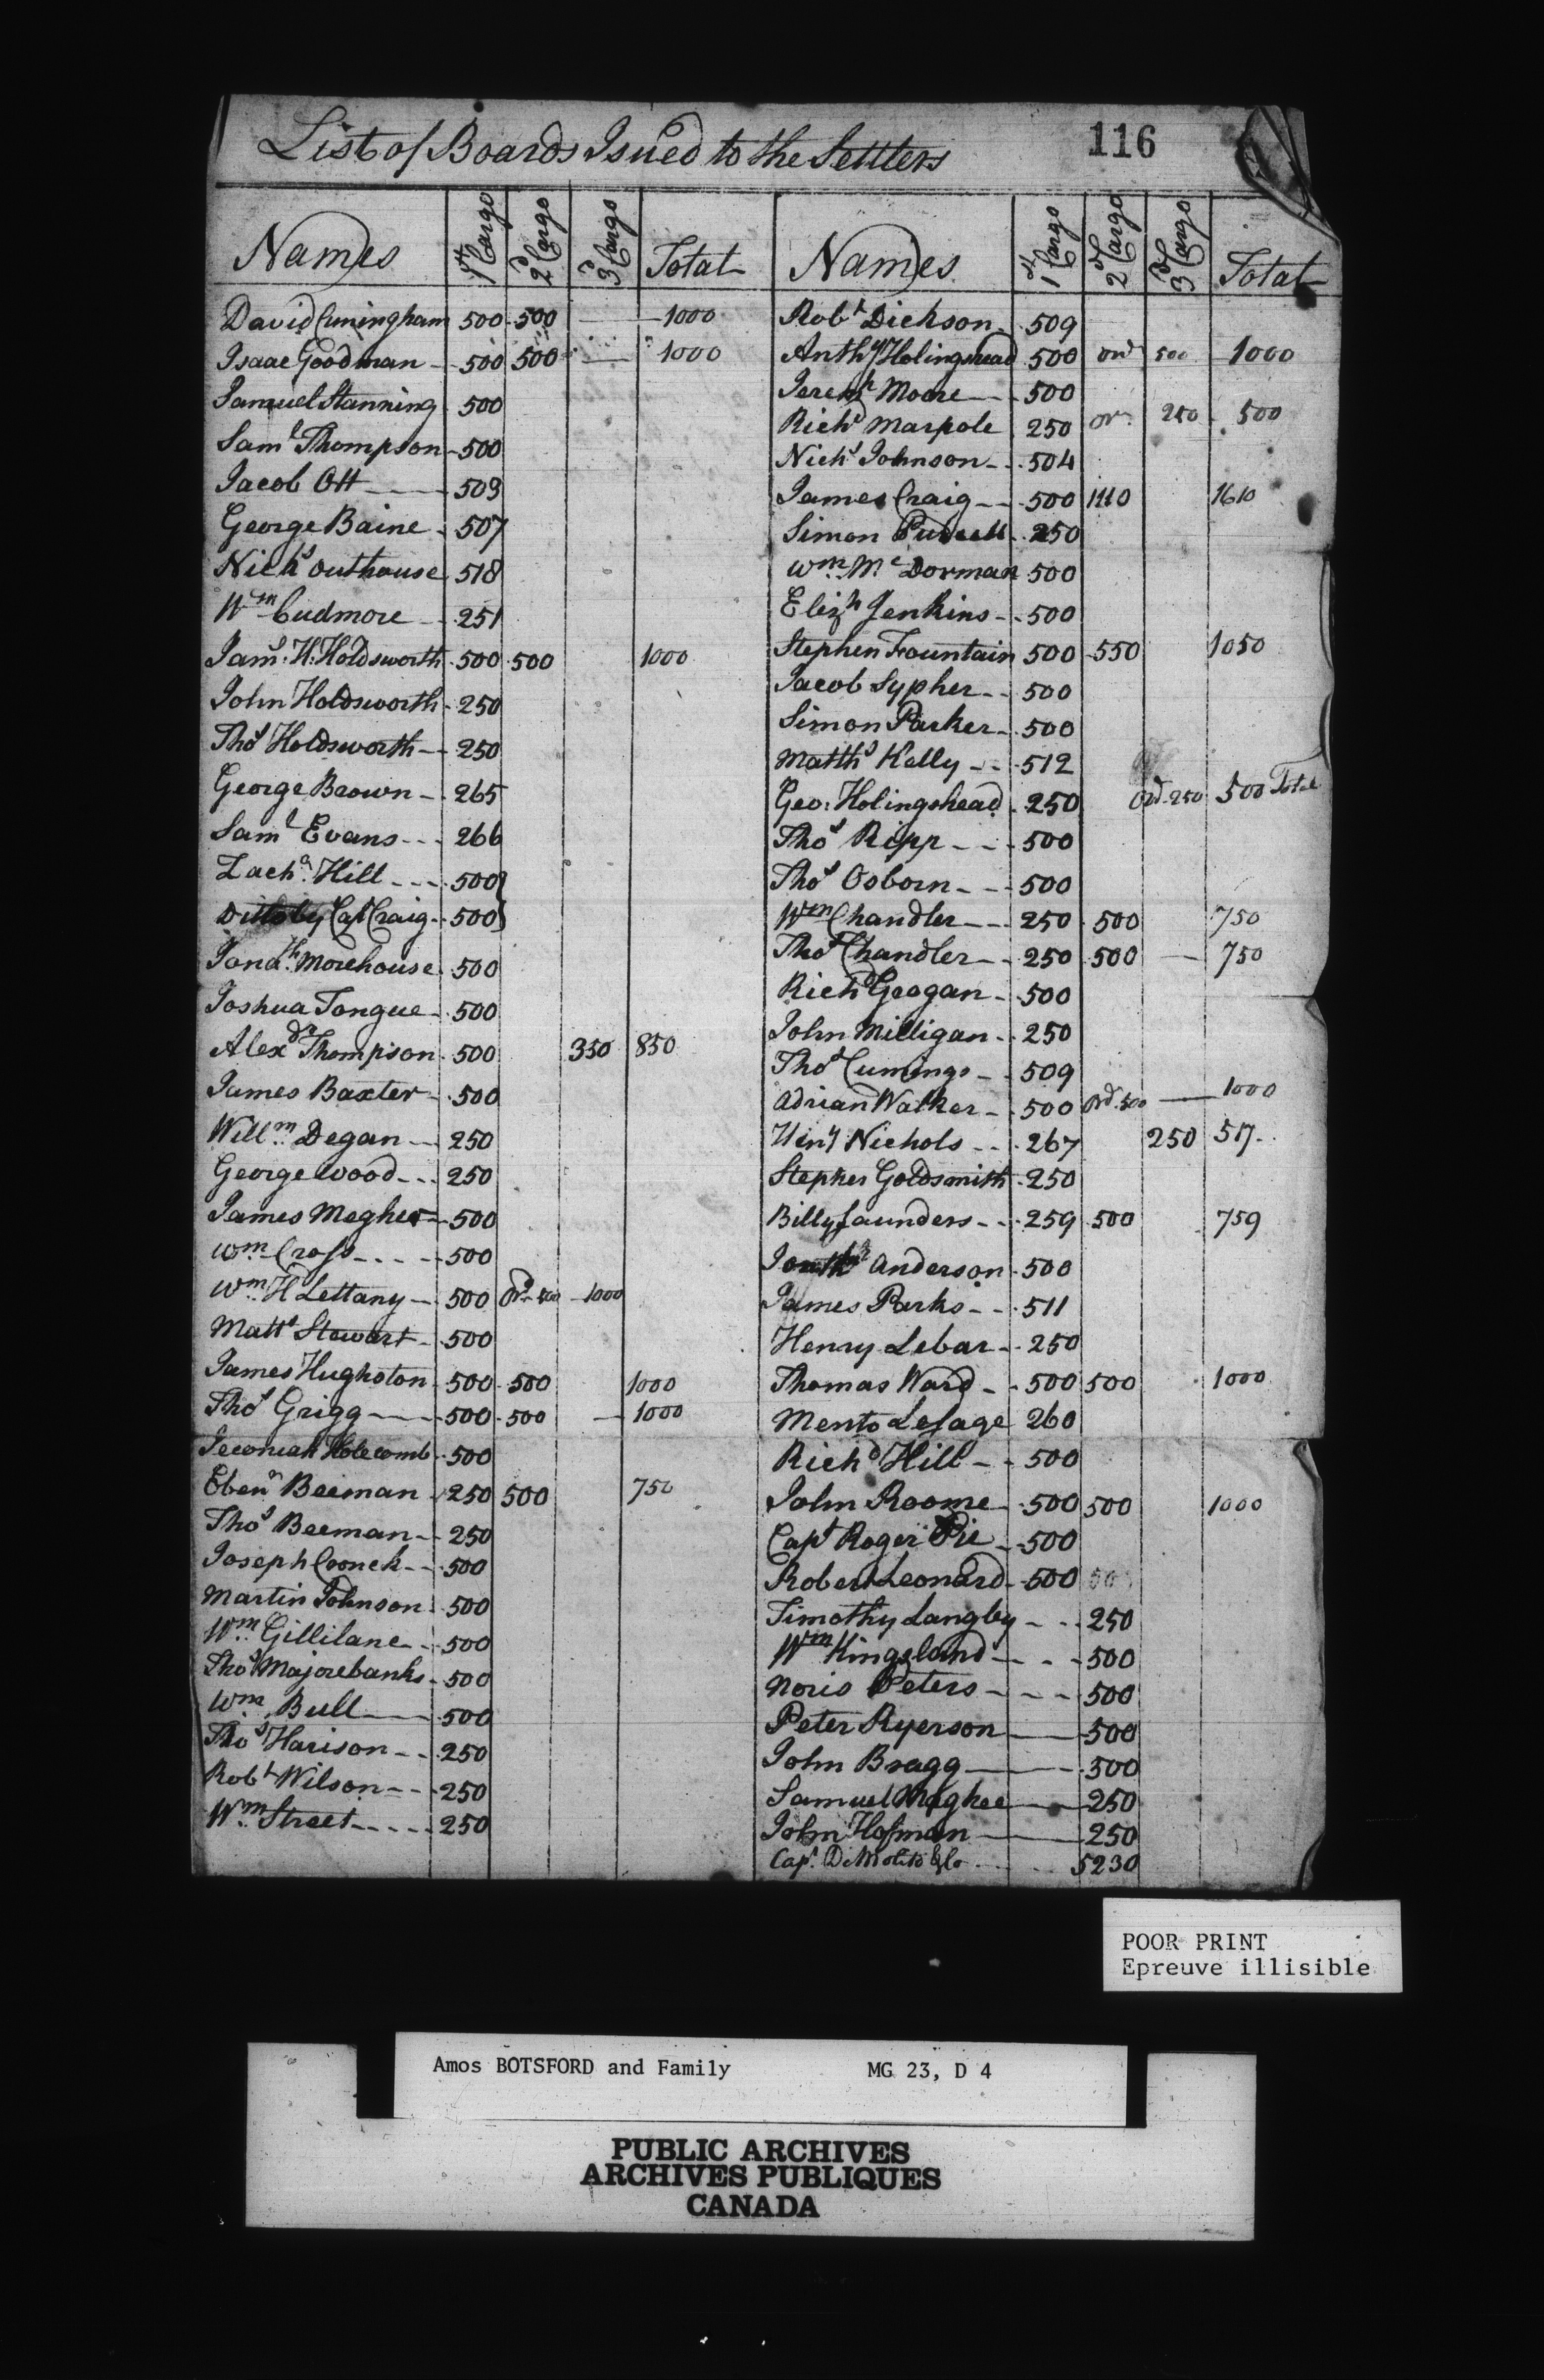 List of Boards Isued to the Settlers
116
Names 1st Cargo 2d Cargo 3d Cargo Total
David Cuningham 500 500 1000
Isaac Goodman 500 500 1000
Samuel Stanning 500
Saml Thompson 500
Jacob Ott 509
George Baine 507
Nichs Outhouse 518
Wm Cudmore 251
Jams. H. Holdsworth 500 500 1000
John Holdsworth 250
Thos Holdsworth 250
George Brown 265
Saml Evans 266
Zacha. Hill 500
Ditto by Capt Craig 500
Jonah. Morehouse 500
Joshua Tongue 500
Alexdr Thompson 500 350 850
James Baxter 500
Willm Degan 250
George Wood 250
James Megher 500
Wm Cross 500
Wm H Lettany 500 Ord 500 1000
Matts Stewart 500
James Hughston 500 500 1000
Thos Grigg 500 500 1000
Jeconiah Holecomb 500
Ebenr Beeman 250 500 750
Thos Beeman 250
Joseph Cronck 500
Martin Johnson 500
Wm Gillilane 500
Thos Majorebanks 500
Wm Bull 500
Thos Harison 250
Robt Wilson 250
Wm Street 250
Names 1st Cargo 2d Cargo 3d Cargo Total
Robt Dickson 509
Anthy Holingshead 500 ord 500 1000
Jeremh Moore 500
Richd Marpole 250 or 250 500
Nichs Johnson 504
James Craig 500 1110 1610
Simon Pursell 250
Wm Mc Dorman 500
Elizh Jenkins 500
Stephen Fountain 500 550 1050
Jacob Sypher 500
Simon Parker 500
Matths Kelly 512
Geo: Holingshead 250 Ord 250 500 Total
Thos Ripp 500
Thos Osborn 500
Wm Chandler 250 500 750
Thos Chandler 250 500 750
Richd Geogan 500
John Milligan 250
Thos Cumings 509
Adrian Walker 500 Ord 500 1000
Heny Nichols 267 250 517
Stephen Goldsmith 250
Billy Saunders 259 500 759
Anderson 500
James Parks 511
Henry Lebar 250
Thomas Ward 500 500 1000
Mento Lesage 260
Richd Hill 500
John Roome 500 500 1000
Capt Roger Pie 500
Robert Leonard 500 500
Timothy Langley 250
Wm Kingsland 500
Noris Peters 500
Peter Ryerson 500
John Bragg 500
Samuel Maghee 250
John Hofman 250
Capt. DeMolito & Co 5230
POOR PRINT
Epreuve illisible
Amos BOTSFORD and Family MG 23, D 4
PUBLIC ARCHIVES
ARCHIVES PUBLIQUES
CANADA